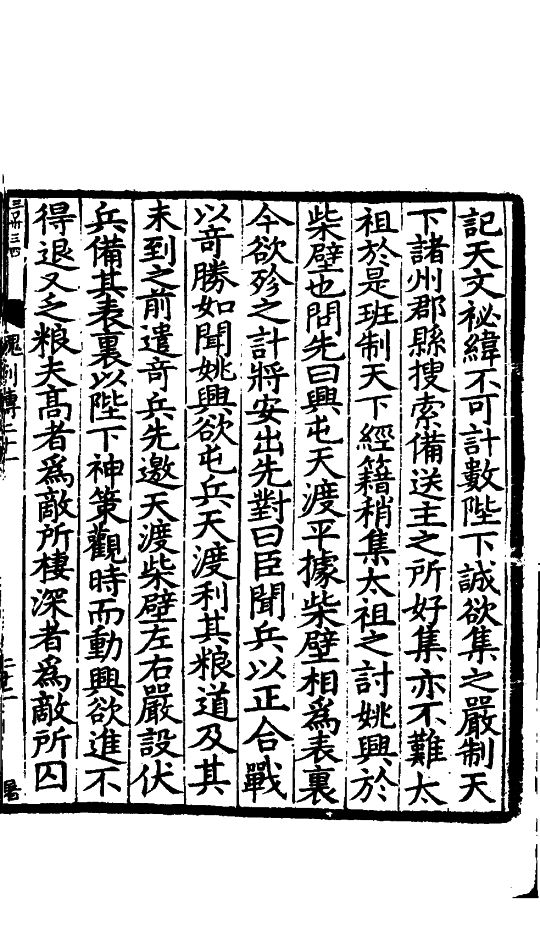 記天文祕緯不可計數陛下誠欲集之嚴制天
下諸州郡縣搜索備送主之所好集亦不難太
祖於是班制天下經籍稍集太祖之討姚興於
柴壁也問先曰興屯天渡平據柴壁相爲表裏
今欲殄之計將安出先對曰臣聞兵以正合戰
以奇勝如聞姚興欲屯兵天渡利其粮道及其
未到之前遣奇兵先邀天渡柴壁左右嚴設伏
兵備其表裏以陛下神策觀時而動興欲進不
得退又乏粮夫髙者爲敵所棲深者爲敵所囚
魏列傳二十一